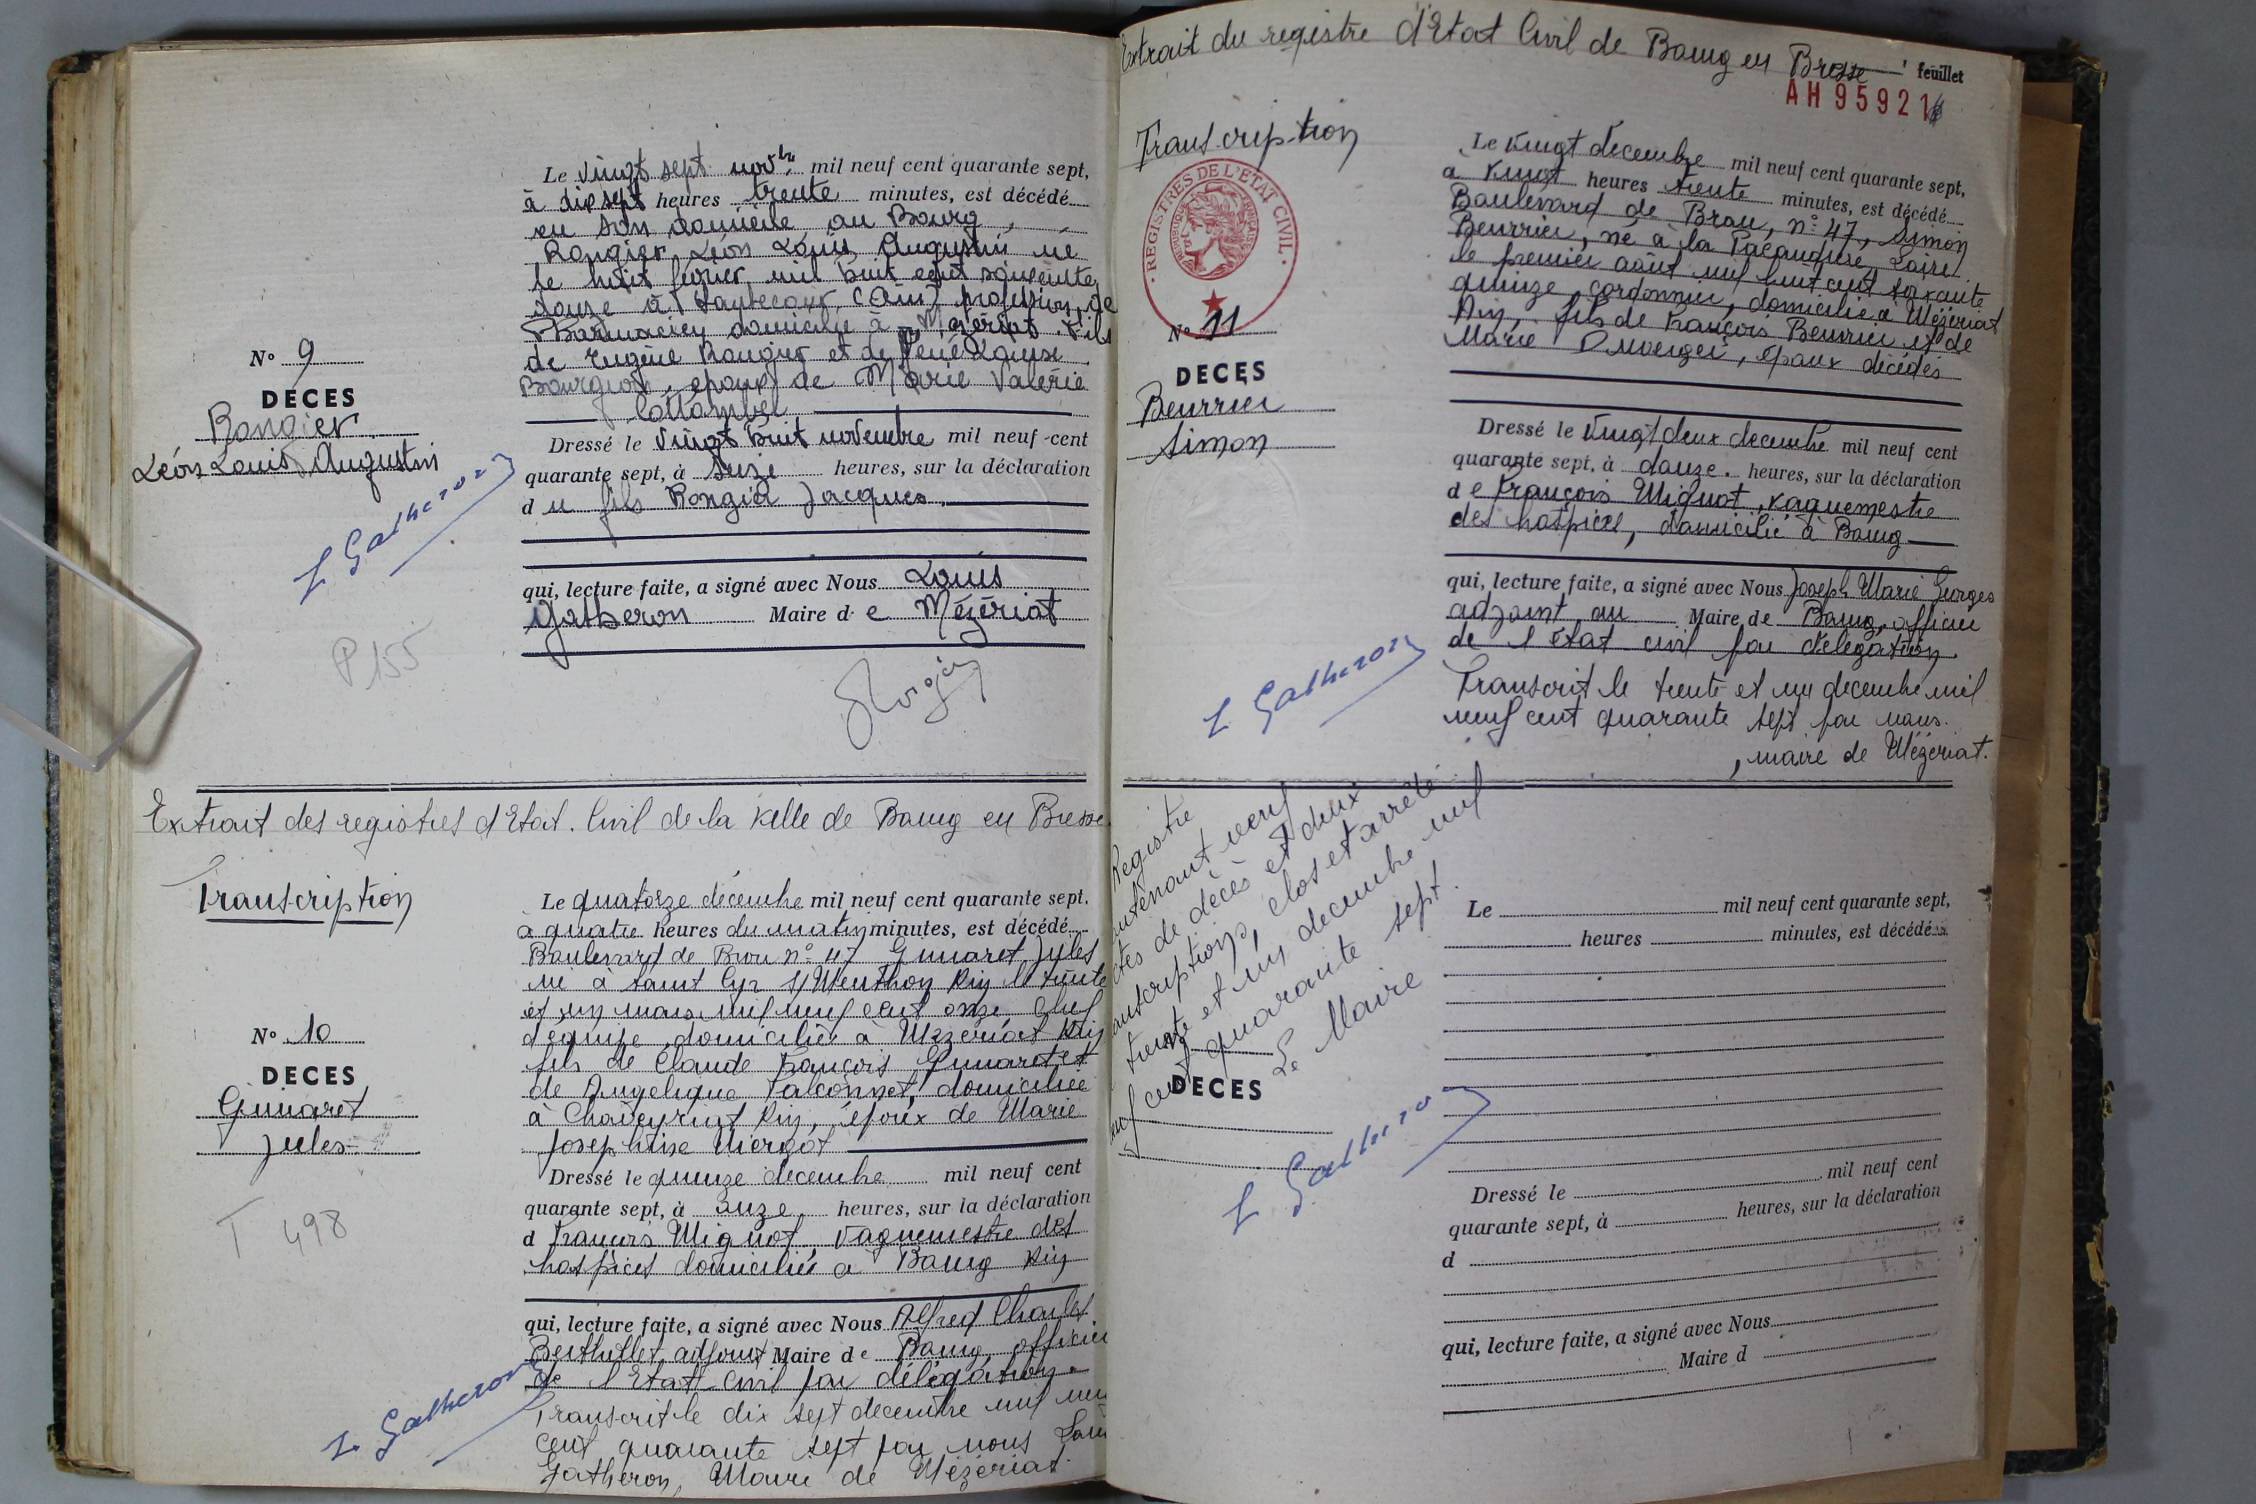 Le vingt sept nov.bre mil neuf cent quarante sept,
à dix sept heures trente minutes, est décédé
en son domicile au Bourg,
Rongier Léon Louis Augustin né
le huit mil huit cent soixante
douze à Hautecour (Ain) profession de
Pharmacien domicilié à Mézériat. Fils
de Eugène Rongier et de Louise
Bourgeois, époux de Marie Valérie

N° 9
DECES
Rongier
Léon Louis Augustin
Dressé le vingt huit novembre mil neuf cent
quarante sept, à heures, sur la déclaration
du fils Rongier Jacques.
L Gatheron
qui, lecture faite, a signé avec Nous Louis
Gatheron Maire de Mézériat
P 155
Extrait des registres d'Etat. Civil de la ville de Bourg en Bresse
Transcription
N° 10
DECES
Guuaret
Jules
T 498
Le quatorze décembre mil neuf cent quarante sept.
à quatre heures du matin minutes, est décédé
Boulevard de Brou n° 47 Jules
né à Saint Cyr s/Menthon Ain le trente
et un mars mil neuf cent onze chef
d'équipe domicilié à Mézériat Ain
fils de Claude François et
de Angélique Falconnet, domiciliée
à Chaveyriat Ain, époux de Marie
Josephine
Dressé le quinze décembre mil neuf cent
quarante sept, à onze heures, sur la déclaration
d François Mignot, vaguemestre des
hospices domicilié à Bourg Ain
qui, lecture faite, a signé avec Nous Alfred Charles
Berthollet, adjoint Maire de Bourg, officier
de l'Etat-Civil par délégation.
Transcrit le dix sept décembre mil neuf
cent quarante sept par nous Louis
Gatheron, Maire de Mézériat.
L. Gatheron
Extrait du registre d'Etat Civil de Bourg en Bresse feuillet
AH 95921
Transcription
REGISTRES DE L'ÉTAT CIVIL
RÉPUBLIQUE FRANÇAISE
N° 11
DECES
Beurrier
Simon
Le vingt décembre mil neuf cent quarante sept,
à vingt heures trente minutes, est décédé
Boulevard de Brou, n° 47, Simon
Beurrier, né à la Pacaudière, Loire
le premier août mil huit cent soixante
quinze, cordonnier, domicilié à Mézériat
Ain, fils de François Beurrier et de
Marie Duverger, époux décédés
Dressé le vingt deux décembre mil neuf cent
quarante sept, à douze. heures, sur la déclaration
de François Mignot, vaguemestre
des hospices, domicilié à Bourg
qui, lecture faite, a signé avec Nous Joseph Marie Georges
adjoint au Maire de Bourg, officier
de l'Etat civil par délégation.
Transcrit le trente et un décembre mil
neuf cent quarante sept par nous.
, maire de Mézériat.
L Gatheron
Registre
contenant neuf
actes de décès et deux
transcriptions, clos et arrêté
le trente et un décembre mil
neuf cent quarante sept.
Le Maire
L Gatheron
DECES
Le mil neuf cent quarante sept,
heures minutes, est décédé
Dressé le mil neuf cent
quarante sept, à heures, sur la déclaration
d
qui, lecture faite, a signé avec Nous
Maire d